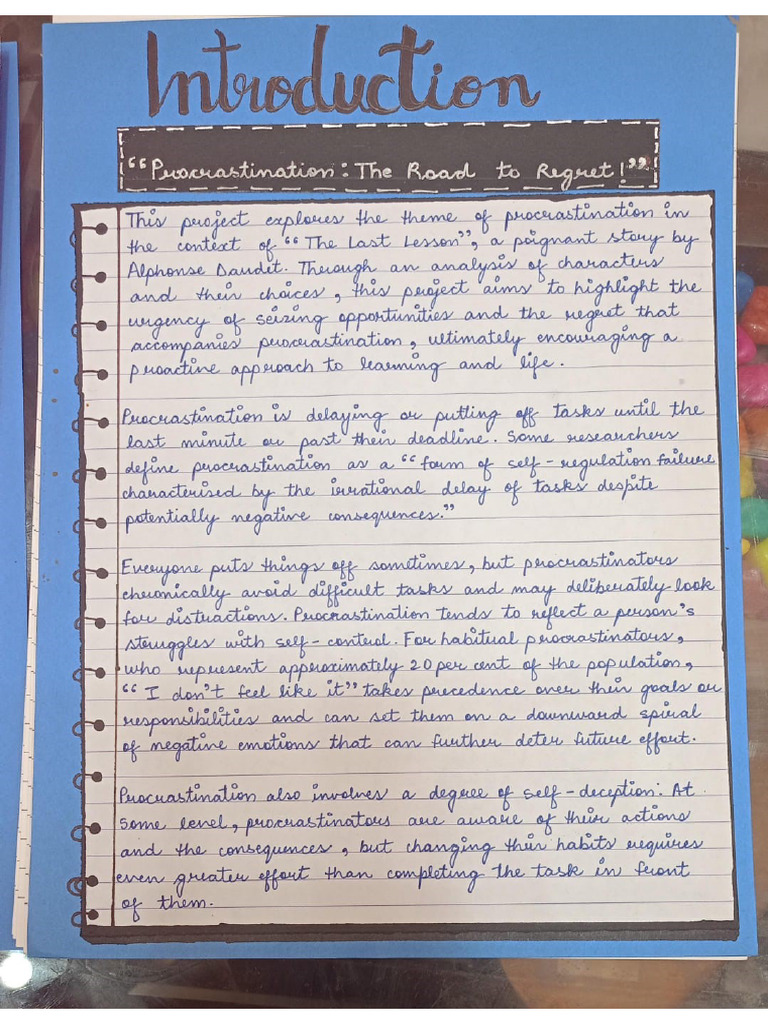 Introduction
“Procrastination: The Road to Regret!”
This project explores the theme of procrastination in
the context of “The Last Lesson”, a poignant story by
Alphonse Daudet. Through an analysis of characters
and their choices, this project aims to highlight the
urgency of seizing opportunities and the regret that
accompanies procrastination, ultimately encouraging a
proactive approach to learning and life.
Procrastination is delaying or putting off tasks until the
last minute or past their deadline. Some researchers
define procrastination as a “form of self-regulation failure
characterised by the irrational delay of tasks despite
potentially negative consequences.”
Everyone puts things off sometimes, but procrastinators
chronically avoid difficult tasks and may deliberately look
for distractions. Procrastination tends to reflect a person's
struggles with self-control. For habitual procrastinators,
who represent approximately 20 per cent of the population,
“I don't feel like it” takes precedence over their goals or
responsibilities and can set them on a downward spiral
of negative emotions that can further deter future effort.
Procrastination also involves a degree of self-deception: At
some level, procrastinators are aware of their actions
and the consequences, but changing their habits requires
even greater effort than completing the task in front
of them.